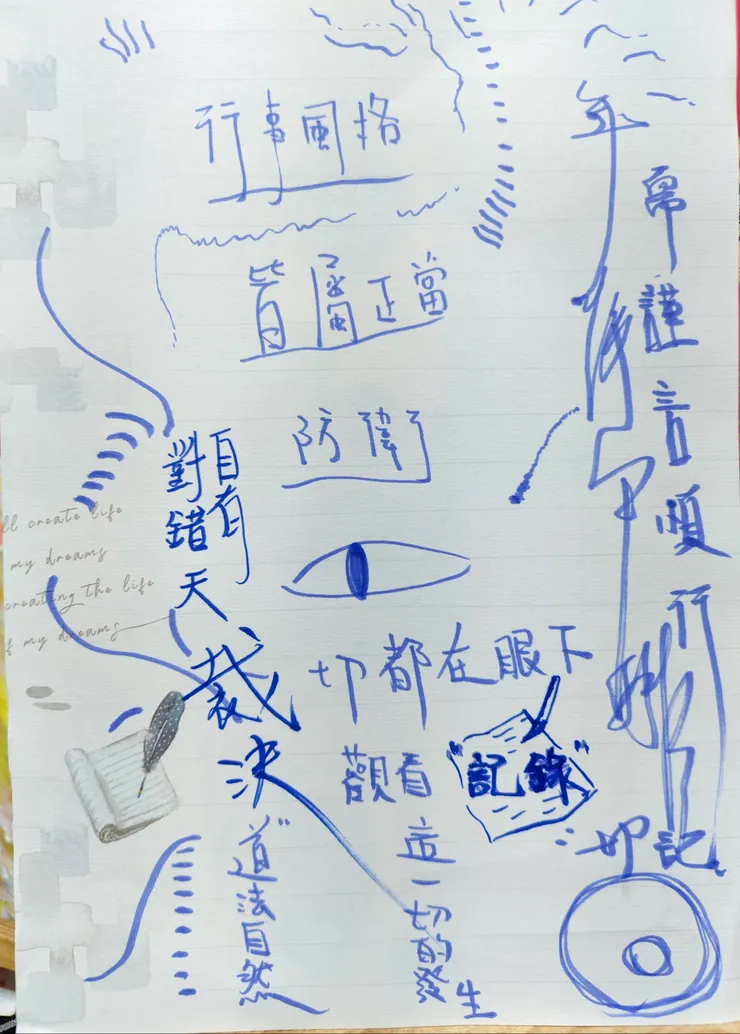 行事風格
皆屬正當
防衛
自有
對錯
天
裁
決
"道"
法自然
切都在眼下
觀看"記錄"
這一切的發生
年
謹言順行
切記
ll create life
my dreams
creating the life
f my dreams